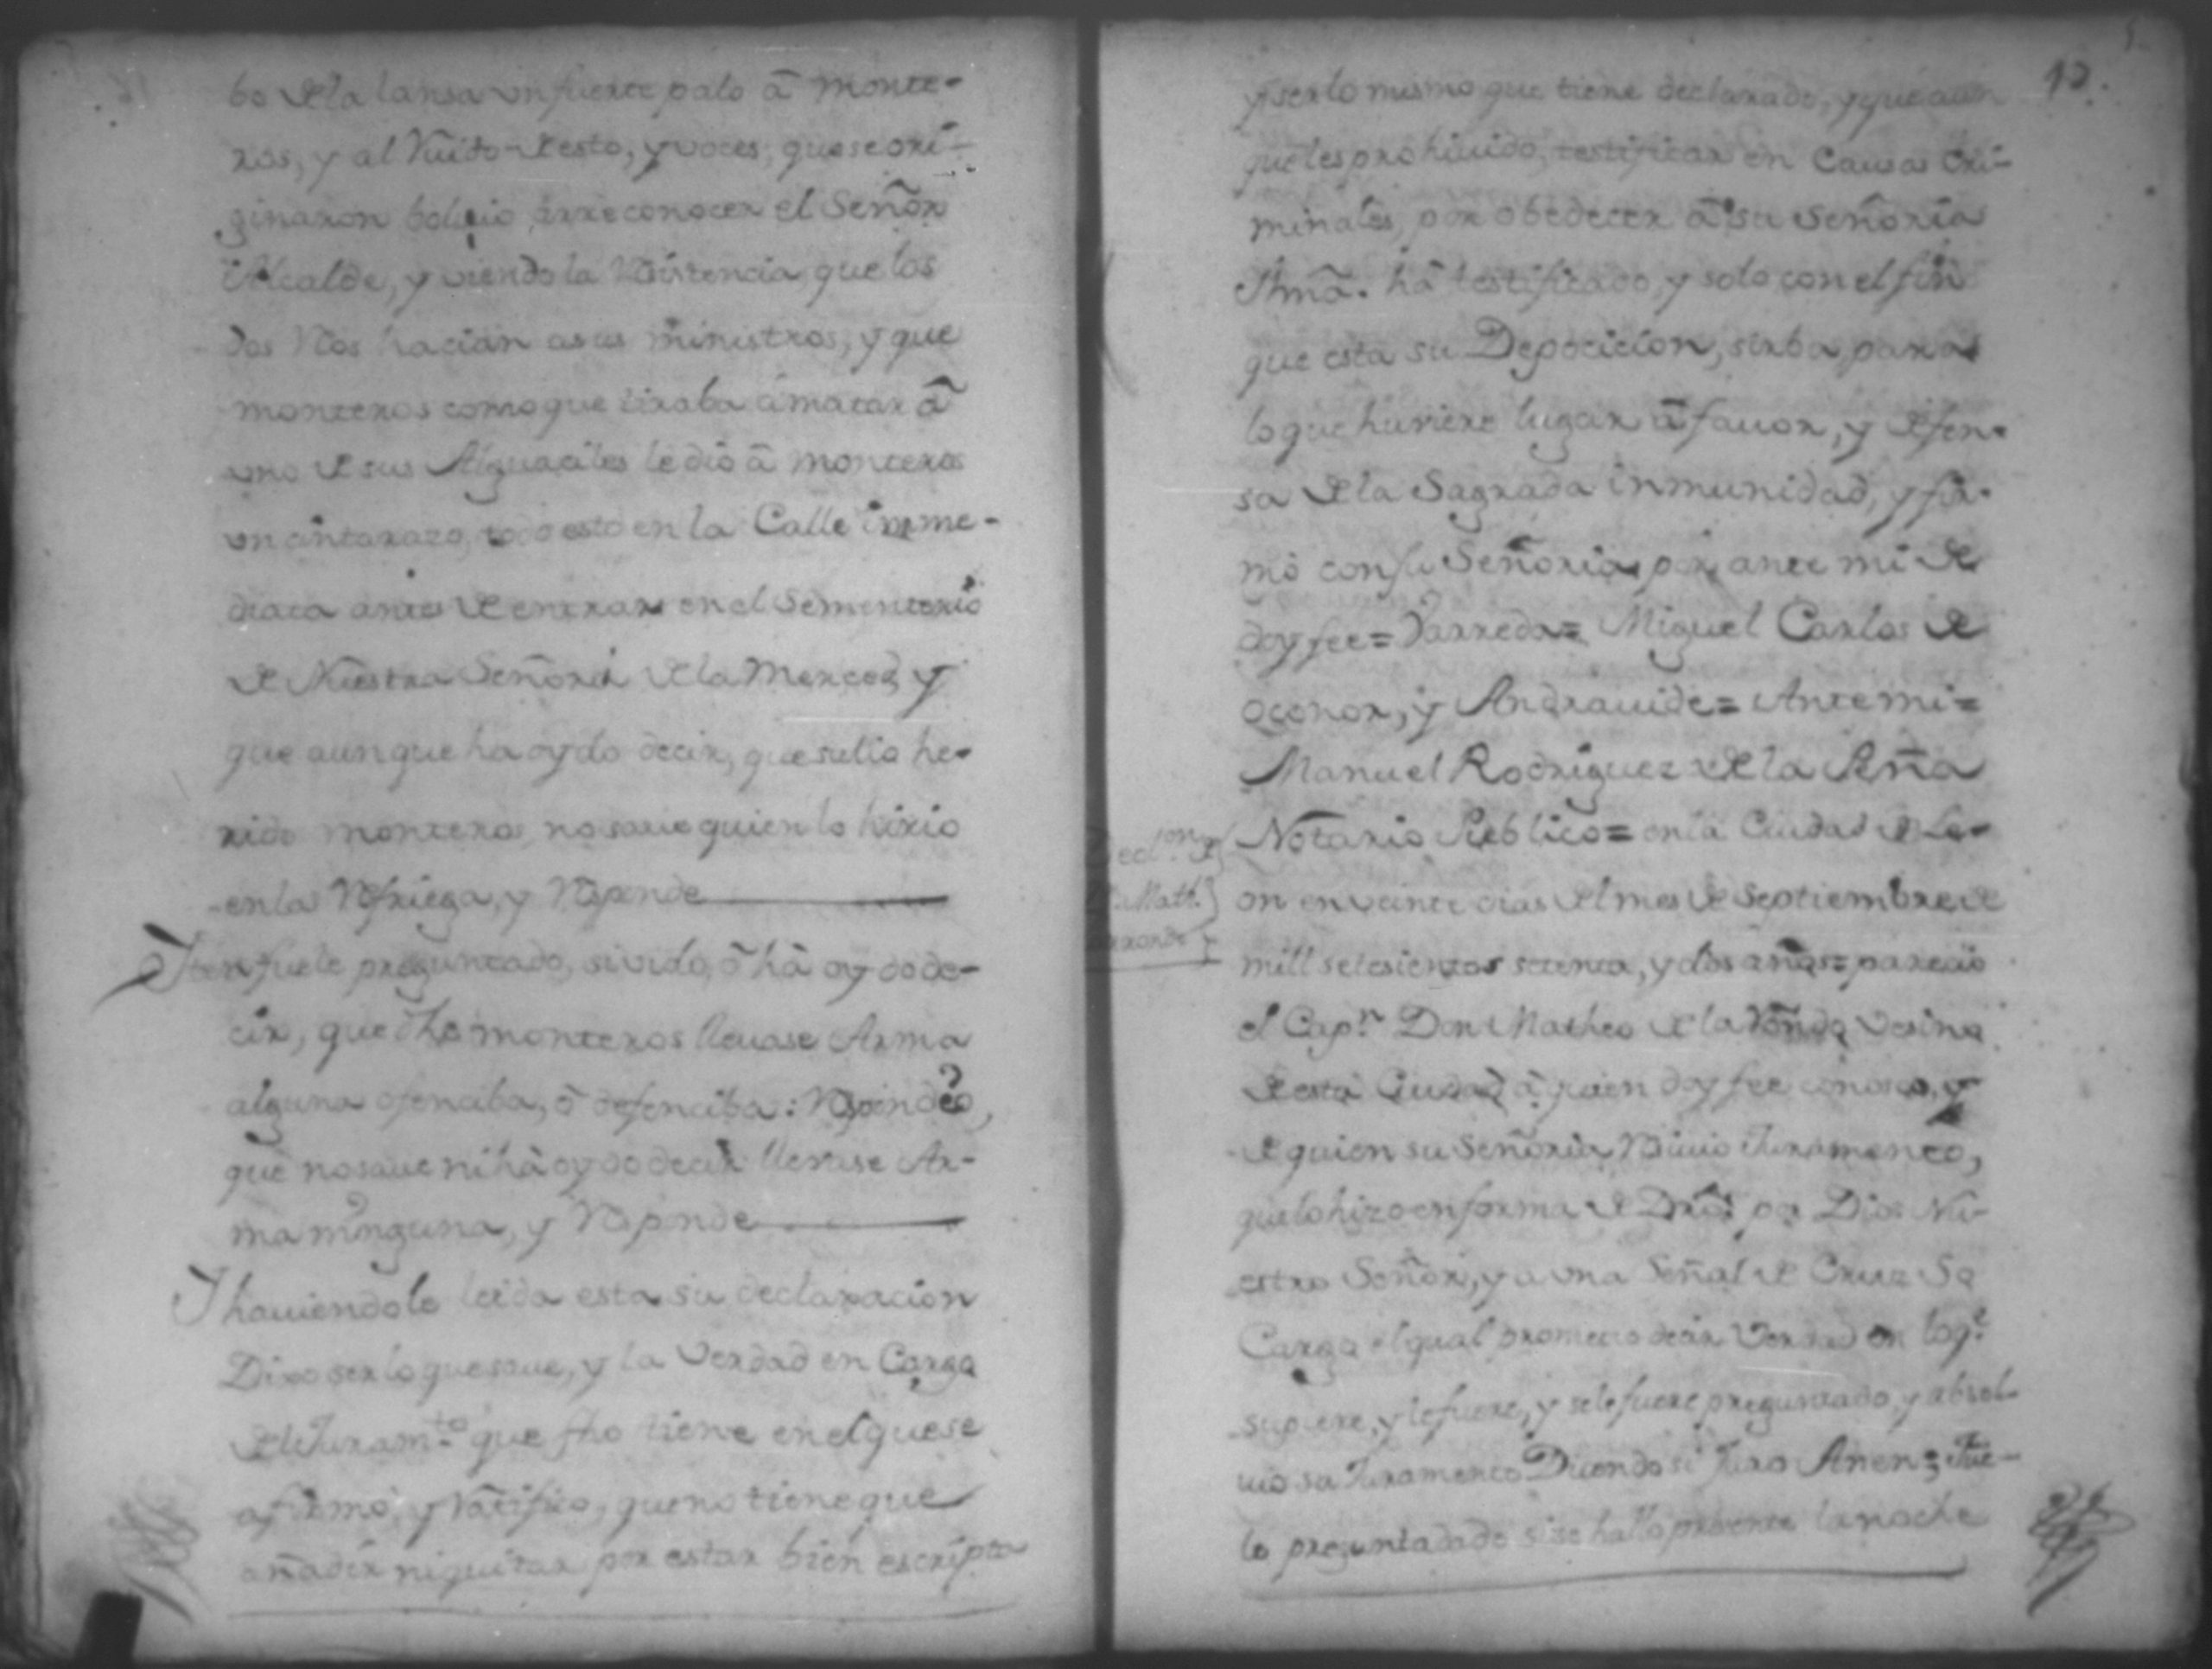 bo de la lansa vn fuerte palo â monte-
ros, y al Ruido de esto, y voces, que se ori-
ginaron boluio a rreconocer el Señor
Alcalde, y viendo la Resistencia, que los
dos Reos hacian a sus ministros, y que
monteros como que tiraba â matar â
uno de sus Alguaciles le dio â monteros
un cintarazo, todo esto en la Calle imme-
diata antes de entrar en el Sementerio
de Nuestra Señora de la Merced, y
que aunque ha oydo decir, que salio he-
rido monteros, no saue quien lo hirio
en la Refriega, y Responde
Iten fuele preguntado, si vido, ô hâ oydo de-
cir, que dho monteros lleuase Arma
alguna ofenciba, ô defenciba: Respondio,
que no saue ni hâ oydo decir lleuase Ar-
ma ninguna, y Responde
Y hauiendole leida esta su declaracion
Dixo ser lo que saue, y la Verdad en Carga
del Juramto. que fho tiene en el que se
afirmó, y Ratifico, que no tiene que
añadir ni quitar por estar bien escripta
12.
y ser lo mismo que tiene declarado, y que aun
que les prohiuido, testificar en Causas Cri-
minales, por obedecer â su Señoria
Illma. hâ testificado, y solo con el fin
que esta su Depocicion, sirba para
lo que huviere lugar â fauor, y defen-
sa de la Sagrada inmunidad, y fir-
mò con su Señoria por ante mi de
doy fee= Varreda= Miguel Carlos de
Oconor, y Andrauide= Ante mi=
Manuel Rodriguez de la Peña
Notario Publico= en la Ciudad de Le-
Decl.on de
Dn Math.
on en veinte dias del mes de Septiembre de
mill setesientos setenta, y dos años= parecio
el Capn. Don Matheo de la Ronda Vesino
de esta Ciudad â quien doy fee conosco, y
de quien su Señoria Reciuio Juramento,
que lo hizo en forma de Dro. por Dios Nu-
estro Señor, y a una Señal de Cruz So
Carga el qual prometio decir Verdad en lo q.e
supiere, y le fuere, y se le fuere preguntado, y absol-
uio su Juramento Diciendo si Juro Amen; Fue-
le preguntadado si se hallo presente la noche